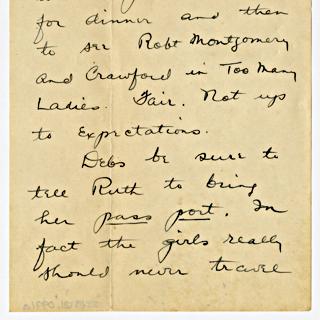 for dinner and then
to see Robt Montgomery
and Crawford in Too Many
Ladies. Fair. Not up
to Expectations.
Debs be sure to
tell Ruth to bring
her pass port. In
fact the girls really
should never travel